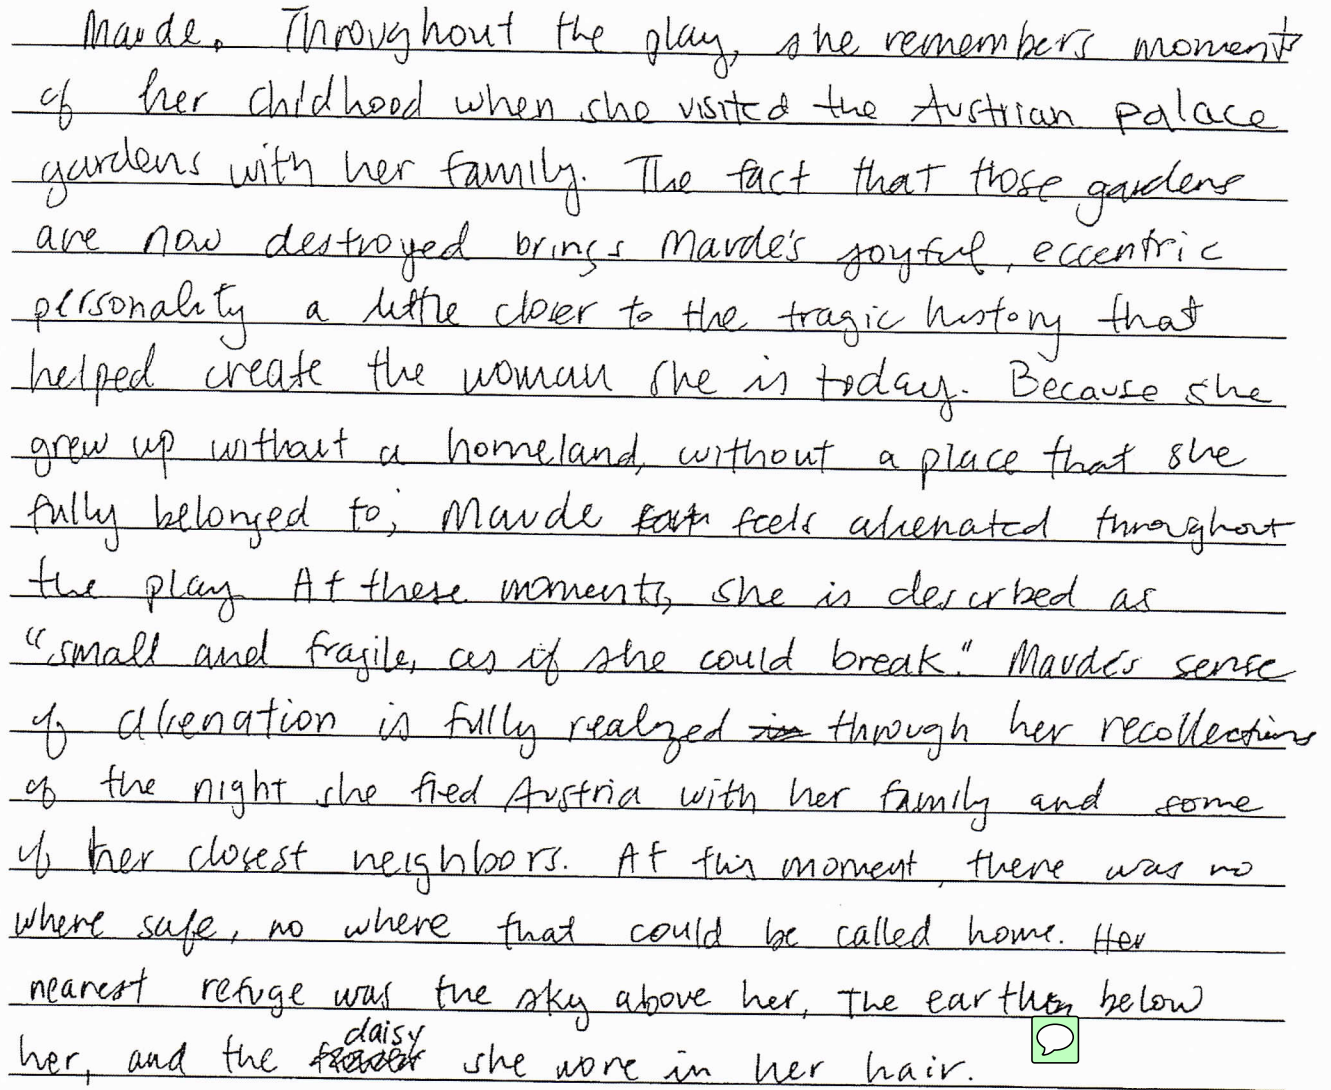 Maude. Throughout the play, she remembers moments
of her childhood when she visited the Austrian palace
gardens with her family. The fact that those gardens
are now destroyed brings Maude's joyful, eccentric
personality a little closer to the tragic history that
helped create the woman she is today. Because she
grew up without a homeland, without a place that she
fully belonged to, Maude feels alienated throughout
the play. At these moments, she is described as
"small and fragile, as if she could break." Maude's sense
of alienation is fully realized through her recollections
of the night she fled Austria with her family and some
of her closest neighbors. At this moment, there was no
where safe, no where that could be called home. Her
nearest refuge was the sky above her, the earth below
her, and the daisy she wore in her hair.